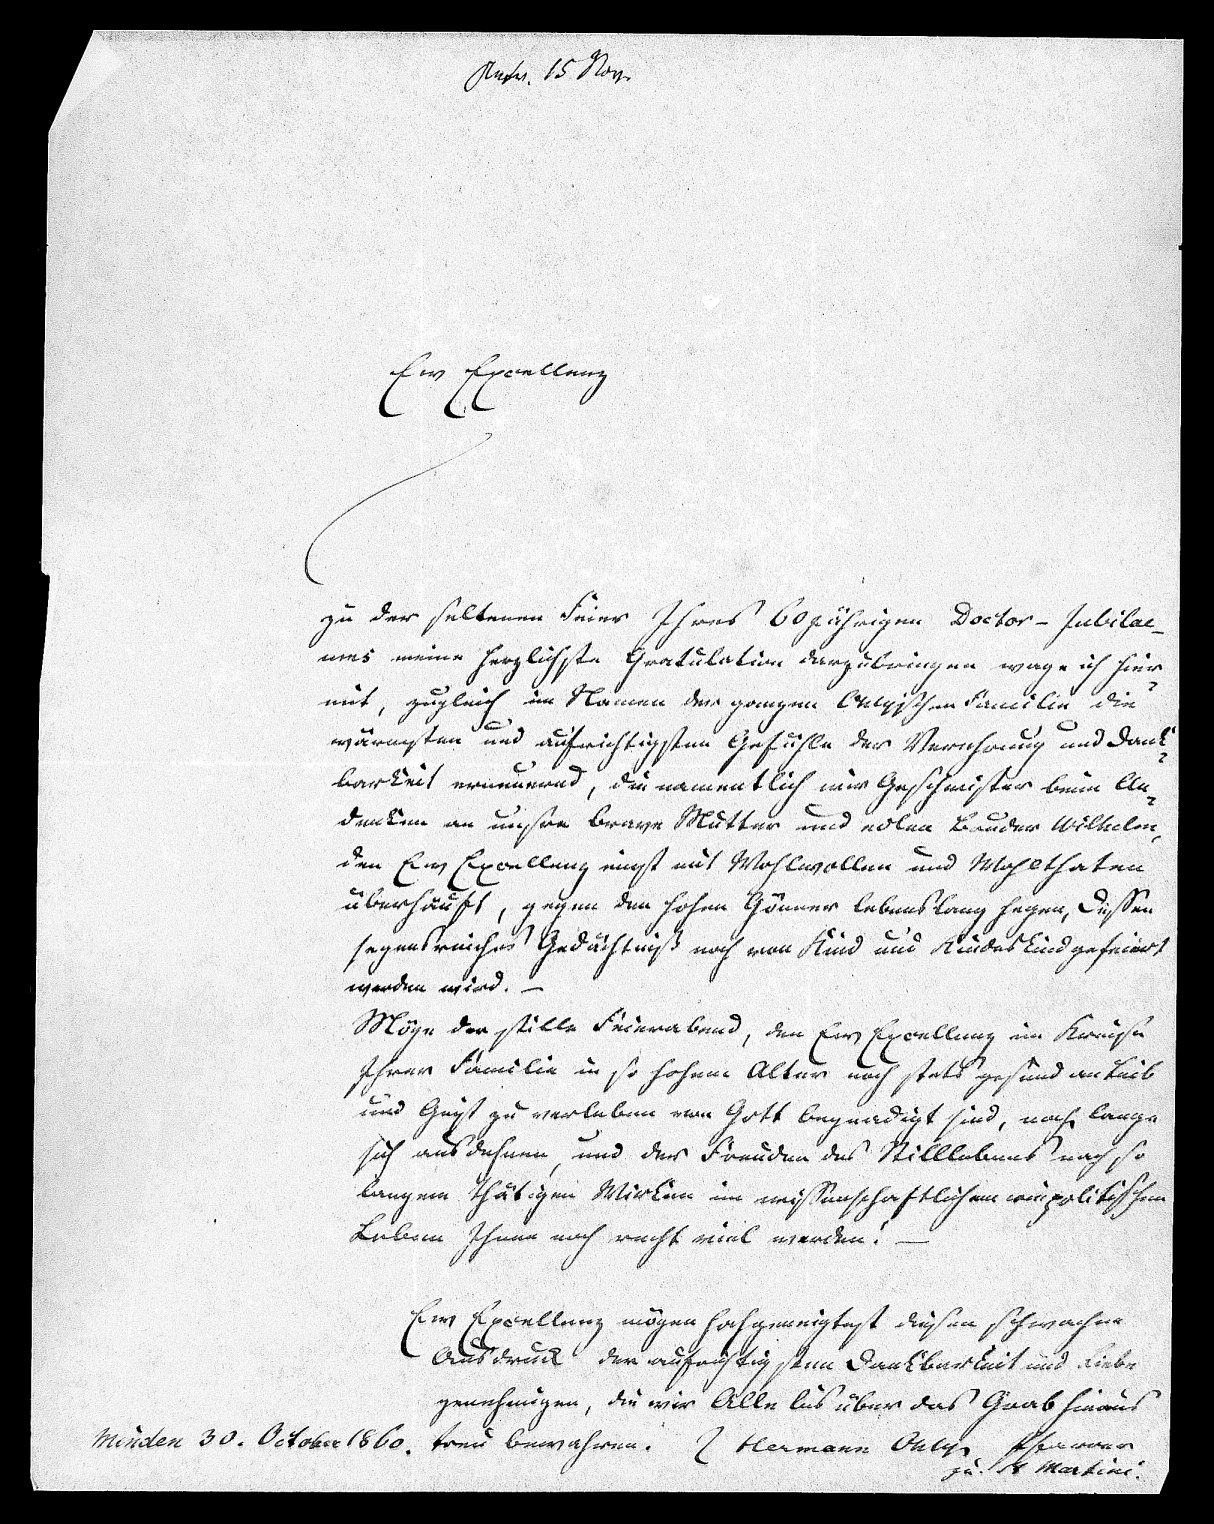 Antw. 15 Nov.
Ew Excellenz
zu der seltenen Feier Ihres 60jährigen Doctor-Jubilae-
ums meine herzlichste Gratulation darzubringen wage ich hier-
mit, zugleich im Namen der ganzen Familie die
wärmsten und aufrichtigsten Gefühle der Verehrung und Dank-
barkeit erneuernd, die namentlich wir Geschwister beim An-
denken an unsre brave Mutter und edlen Bruder Wilhelm,
den Ew Excellenz einst mit Wohlwollen und Wohlthaten
überhäuft, gegen den hohen Gönner lebenslang hegen, Dessen
segensreiches Gedächtniß noch von Kind und Kindeskind gefeiert
werden wird. —
Möge der stille Feierabend, den Ew Excellenz im Kreise
Ihrer Familie in so hohem Alter noch stets gesund an Leib
und Geist zu verleben von Gott begnadigt sind, noch lange
sich ausdehnen, und der Freuden des Stilllebens nach so
langem thätigen Wirken im wissenschaftlichen politischen
Leben Ihnen noch recht viel werden! —
Ew Excellenz mögen hochgeneigtest diesen schwachen
Ausdruck der aufrichtigsten Dankbarkeit und Liebe
genehmigen, die wir Alle bis über das Grab hinaus
Minden 30. October 1860. treu bewahren. Hermann Pfarrer
zu St Martini.